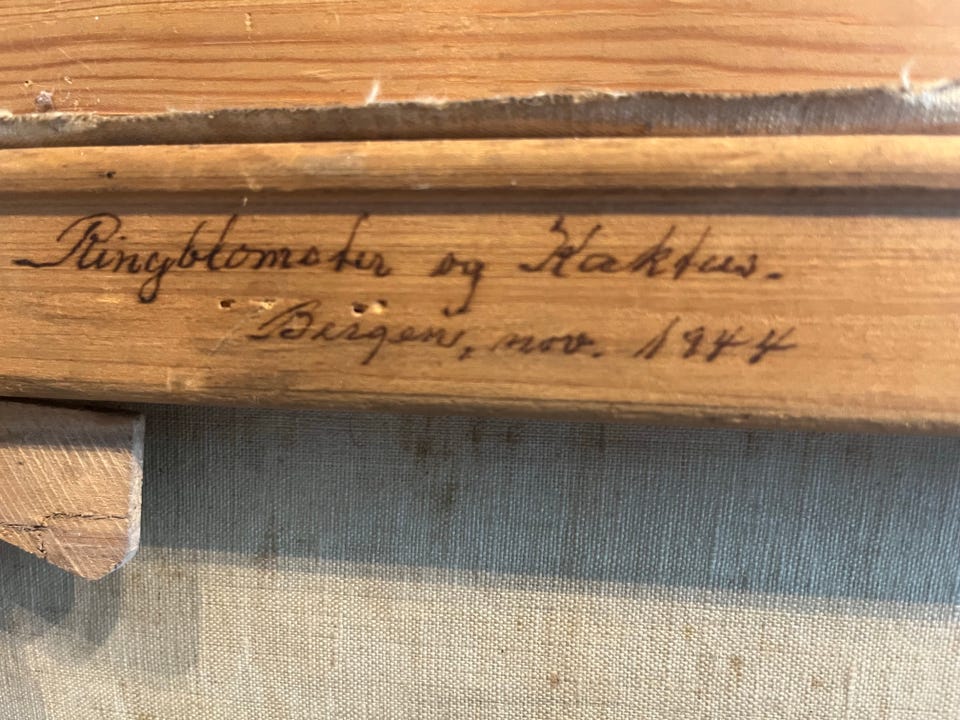 Ringblomster og Kaktus.
Bergen, nov. 1944